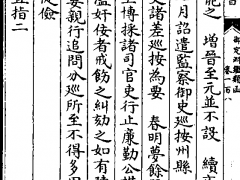 能之 增晉至元並不設 續文
月詔遣監察御史巡按州縣
文諸差巡按為要 春明夢餘
上博採諸司官吏行止廉勤公
濫奸佞者戒飭之糾劾之如有
要親行追問分巡所至不得多用
從儉
五指二